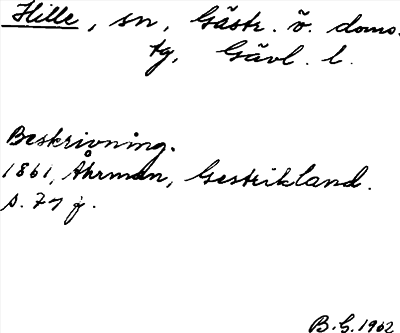 Hille, sn, Gästr. ö. doms.
tg, Gävl. l.
Beskrivning.
1861, Åhrman, Gestrikland.
s. 77 f.
B.G. 1962